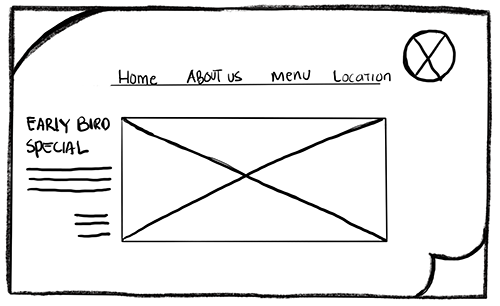 Home ABOUT US MENU Location
EARLY BIRD
SPECIAL